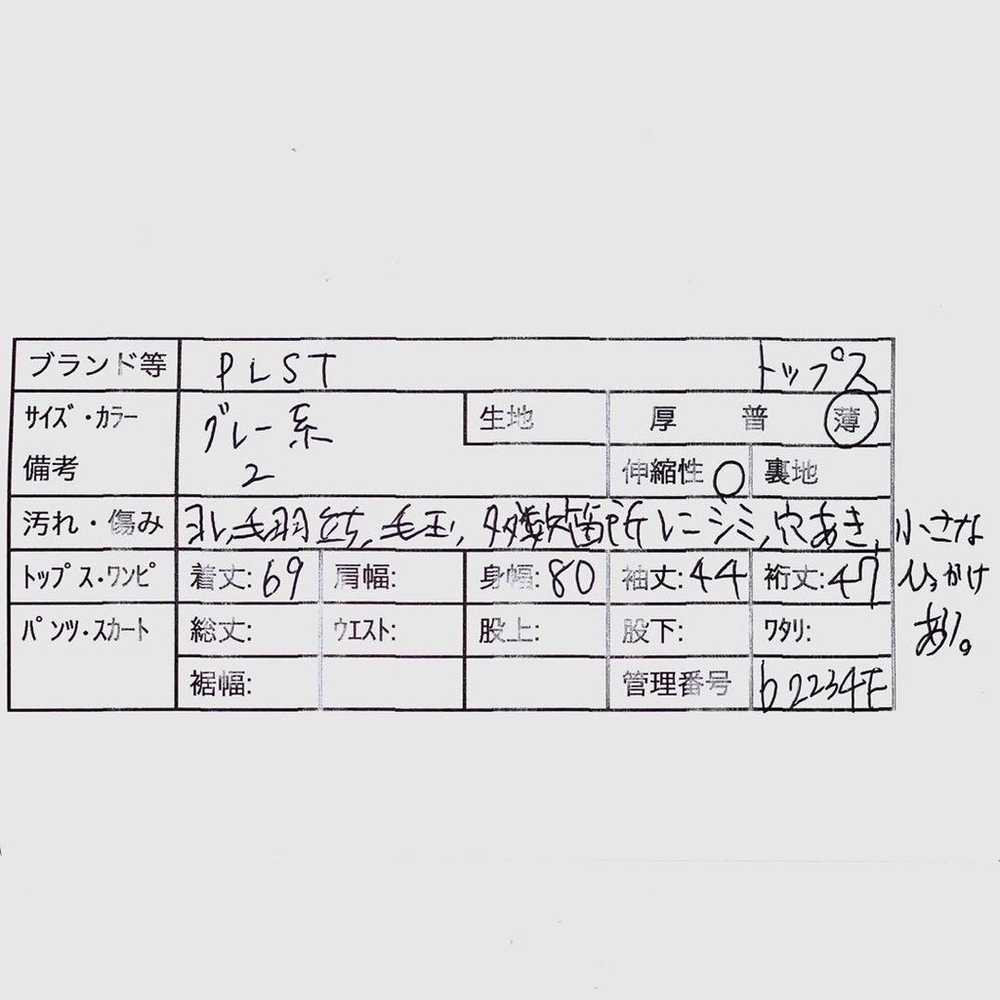 ブランド等 PLST トップス
サイズ・カラー グレー系 生地 厚 普 薄
備考 2 伸縮性 ○ 裏地
汚れ・傷み ヨレ,毛羽立ち,毛玉,多数箇所にシミ,穴あき,小さな
トップス・ワンピ 着丈:69 肩幅: 身幅:80 袖丈:44 裄丈:47 ひっかけ
パンツ・スカート 総丈: ウエスト: 股上: 股下: ワタリ: あり。
裾幅: 管理番号 b2234F